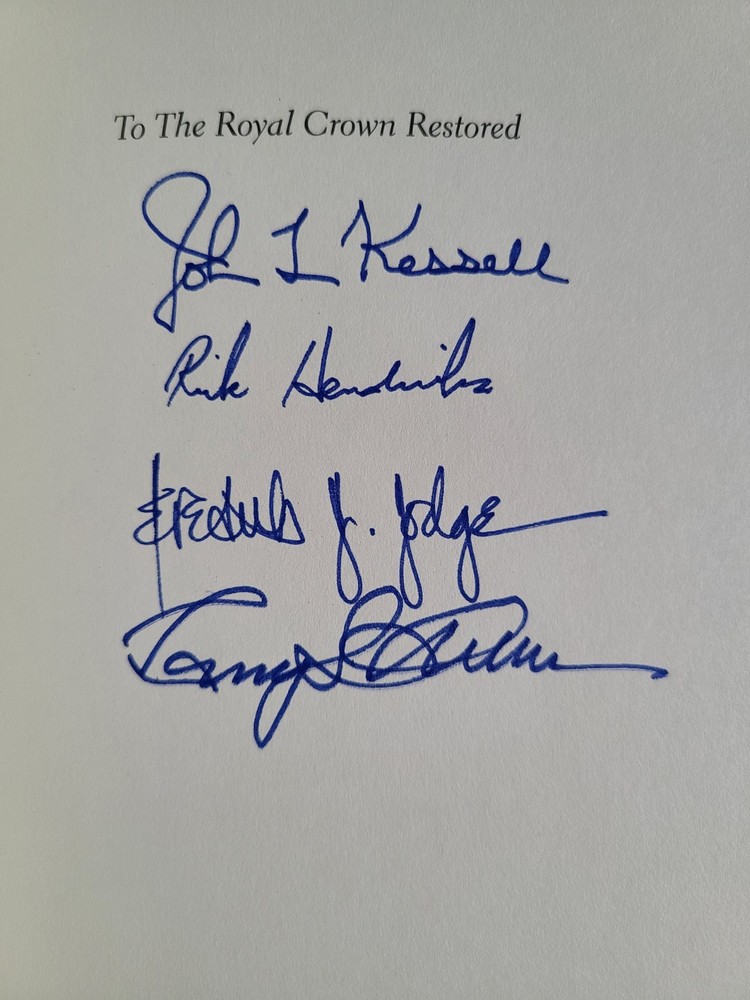 To The Royal Crown Restored
John L Kessell
Rick Hendricks
J. Dodge
Larry D.